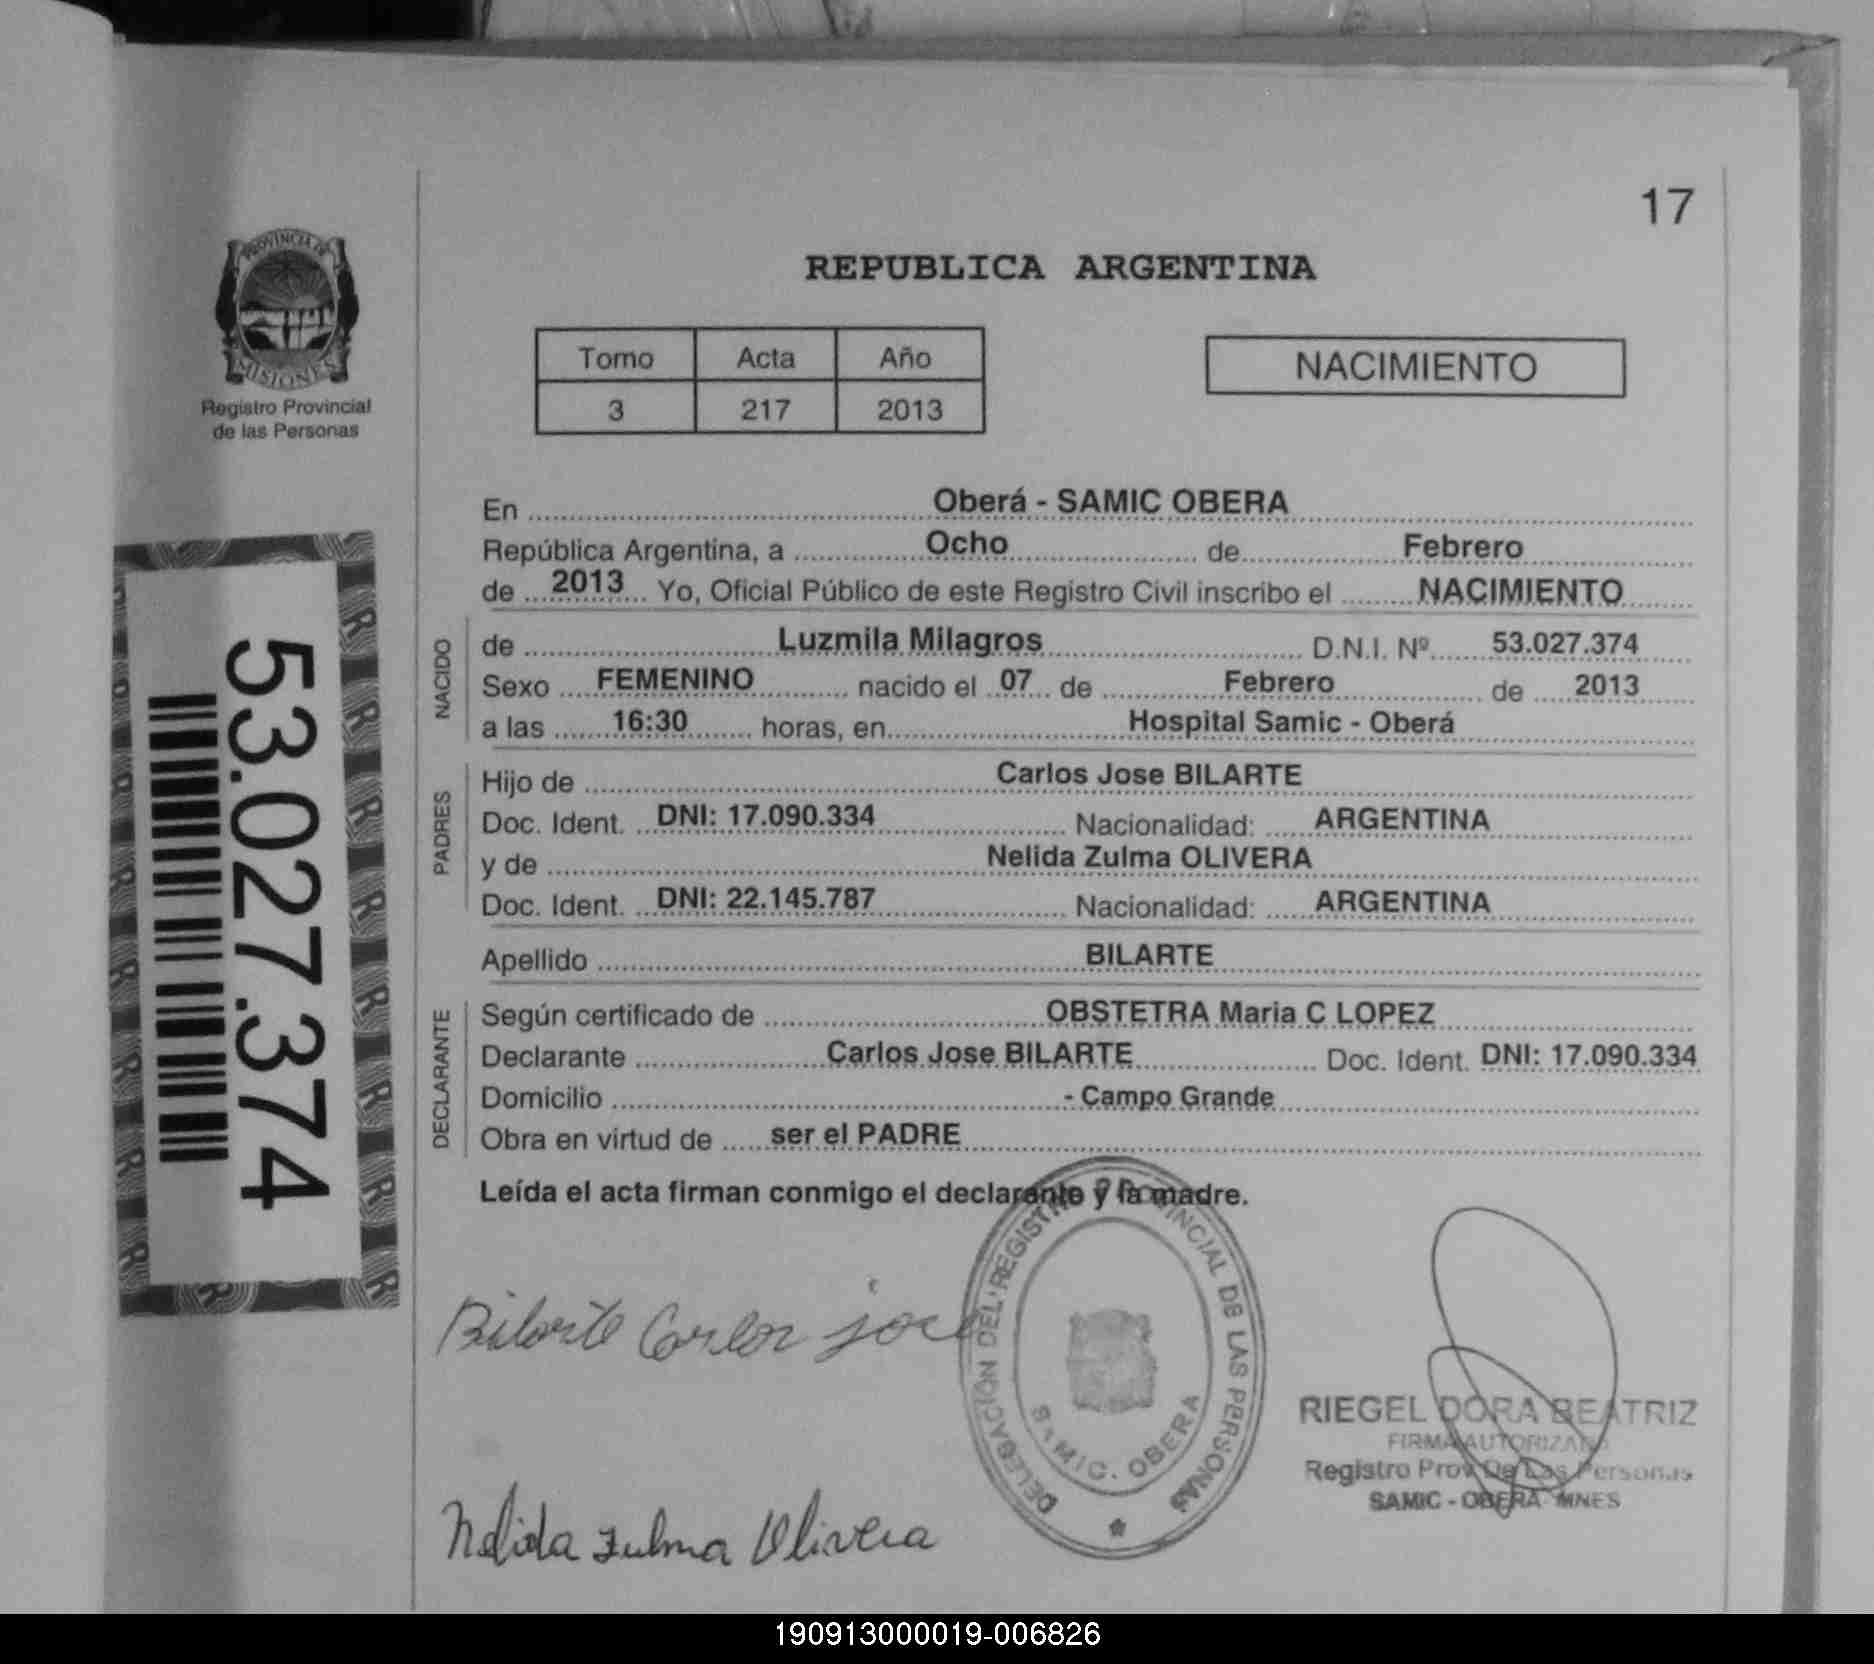 17
PROVINCIA DE
MISIONES
Registro Provincial
de las Personas
REPUBLICA ARGENTINA
Tomo Acta Año
3 217 2013
NACIMIENTO
53.027.374
En Oberá - SAMIC OBERA
República Argentina, a Ocho de Febrero
de 2013 Yo, Oficial Público de este Registro Civil inscribo el NACIMIENTO
NACIDO
de Luzmila Milagros D.N.I. Nº 53.027.374
Sexo FEMENINO nacido el 07 de Febrero de 2013
a las 16:30 horas, en Hospital Samic - Oberá
PADRES
Hijo de Carlos Jose BILARTE
Doc. Ident. DNI: 17.090.334 Nacionalidad: ARGENTINA
y de Nelida Zulma OLIVERA
Doc. Ident. DNI: 22.145.787 Nacionalidad: ARGENTINA
Apellido BILARTE
DECLARANTE
Según certificado de OBSTETRA Maria C LOPEZ
Declarante Carlos Jose BILARTE Doc. Ident. DNI: 17.090.334
Domicilio - Campo Grande
Obra en virtud de ser el PADRE
Leída el acta firman conmigo el declarante y la madre.
Bilarte Carlos jose
DELEGACION DEL REGISTRO PROVINCIAL DE LAS PERSONAS
SAMIC. OBERA
RIEGEL DORA BEATRIZ
FIRMA AUTORIZADA
Registro Prov De Las Personas
SAMIC - OBERA MNES
Nelida Zulma Olivera
190913000019-006826